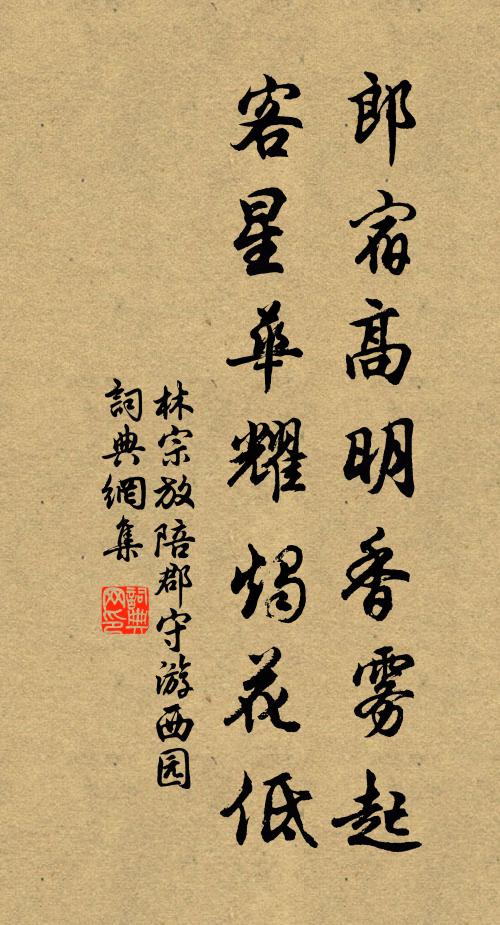 郎宿高明香雾起
客星華耀燭花低
林宗放陪郡守游西园
詞典網集
詞典网印